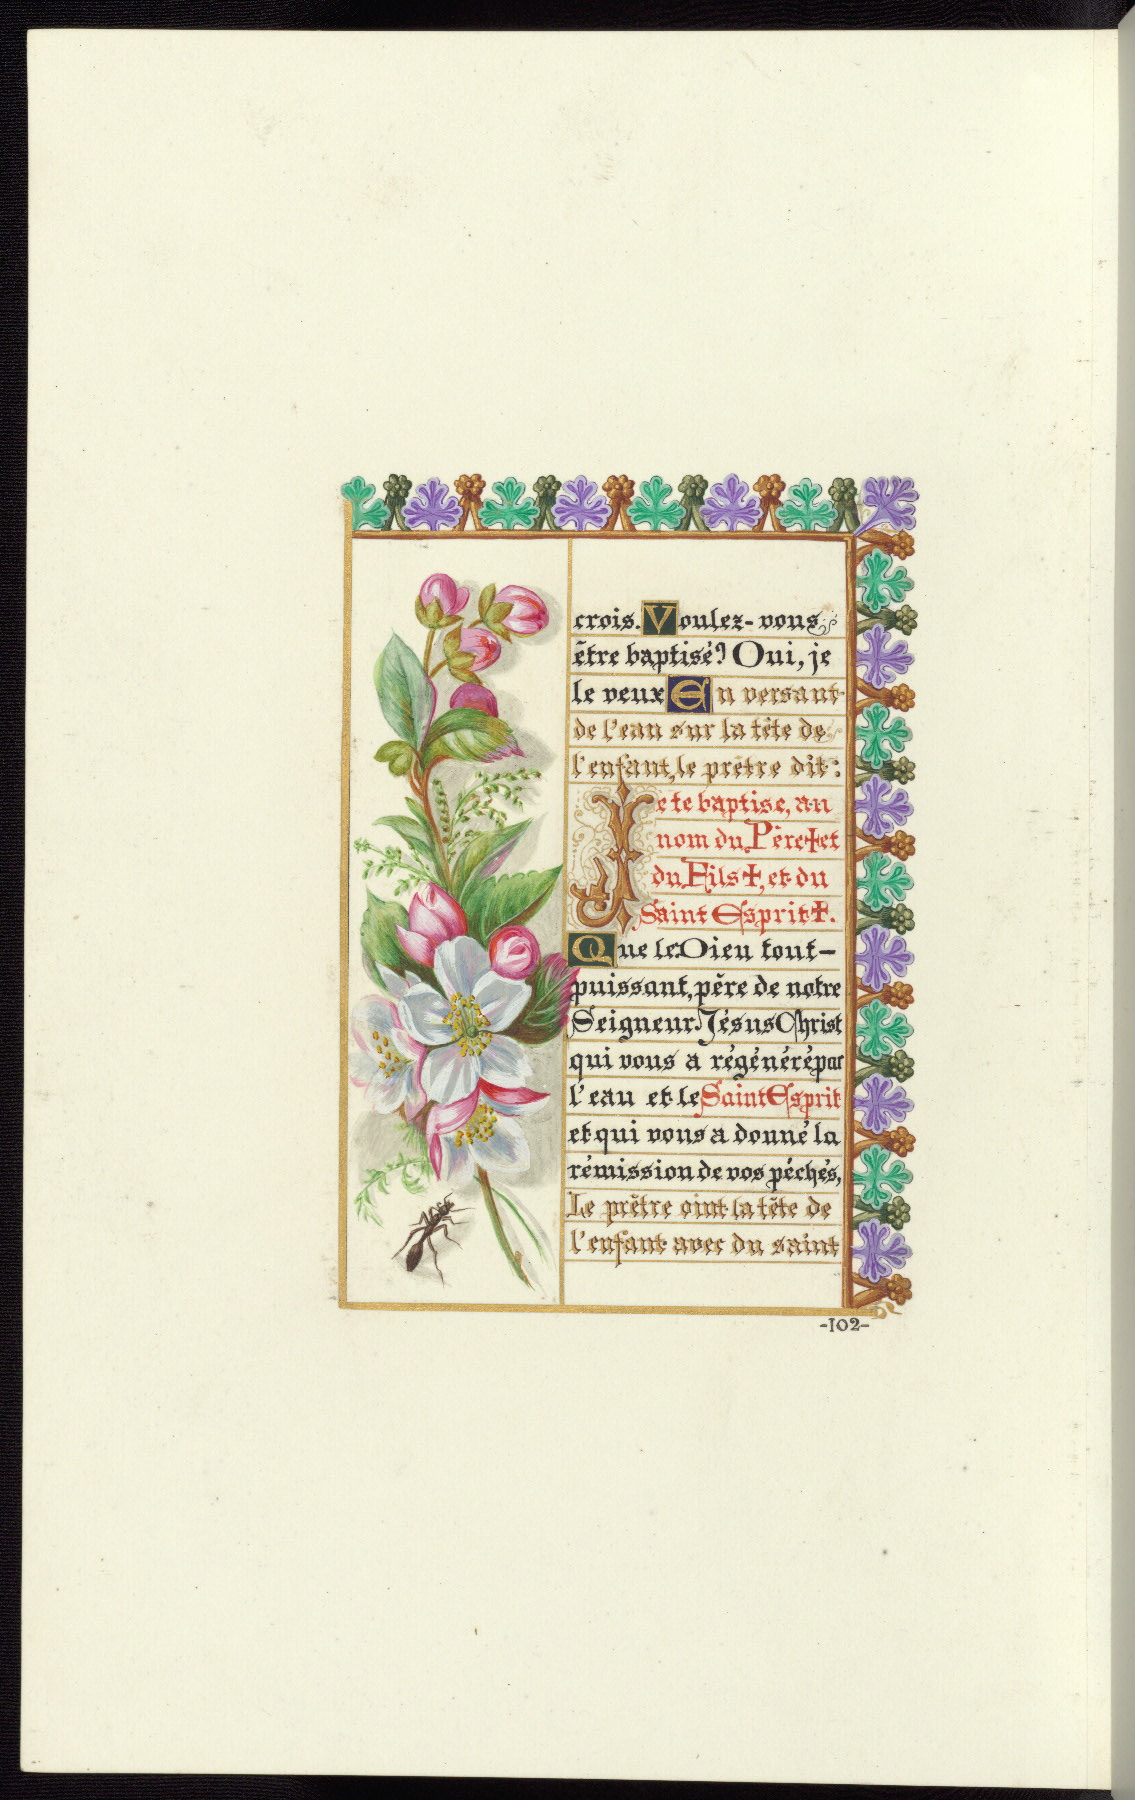 crois. Voulez-vous
être baptisé? Oui, je
le veux En versant
de l'eau sur la tête de
l'enfant, le prêtre dit:
Je te baptise, au
nom du Père ✝ et
du Fils ✝, et du
Saint Esprit ✝.
Que le Dieu tout-
puissant, père de notre
Seigneur Jésus Christ
qui vous a régénéré par
l'eau et le Saint Esprit
et qui vous a donné la
rémission de vos péchés,
Le prêtre oint la tête de
l'enfant avec du saint
-102-